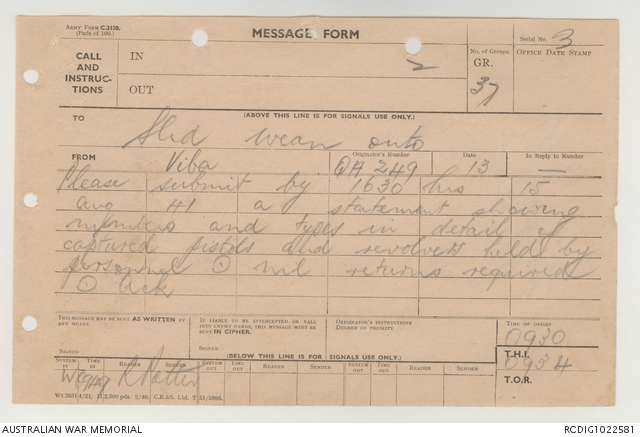 ARMY FORM C.2136.
(Pads of 100.)
MESSAGE FORM
Serial No. 3
CALL AND INSTRUCTIONS
IN
2
No. of Groups
GR.
37
OFFICE DATE STAMP
OUT
TO
(ABOVE THIS LINE IS FOR SIGNALS USE ONLY.)
FROM
Viba
Originator's Number
QA 249
Date
13
In Reply to Number
—
Please submit by 1630 hrs 15
aug 41 a statement showing
numbers and types in detail of
captured pistols and revolvers held by
personnel ⊙ nil returns required
⊙ ack
THIS MESSAGE MAY BE SENT AS WRITTEN BY ANY MEANS.
SIGNED
IF LIABLE TO BE INTERCEPTED OR FALL INTO ENEMY HANDS, THIS MESSAGE MUST BE SENT IN CIPHER.
SIGNED
ORIGINATOR'S INSTRUCTIONS
DEGREE OF PRIORITY
TIME OF ORIGIN
0930
(BELOW THIS LINE IS FOR SIGNALS USE ONLY.)
T.H.I.
0934
SYSTEM IN
TIME IN
READER
SENDER
SYSTEM OUT
TIME OUT
READER
SENDER
SYSTEM OUT
TIME OUT
READER
SENDER
T.O.R.
AUSTRALIAN WAR MEMORIAL
RCDIG1022581